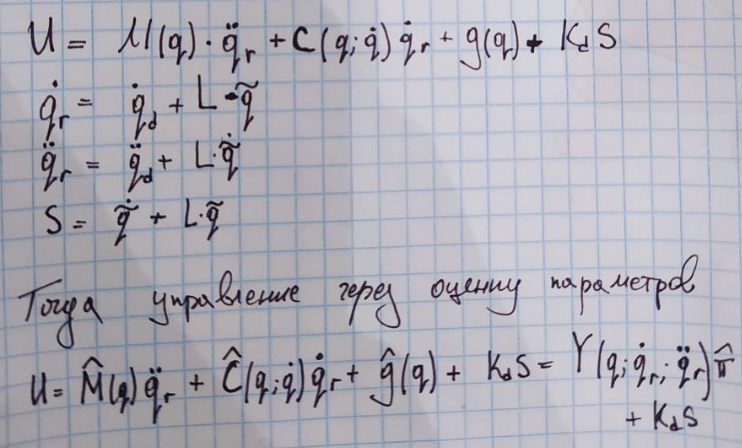 U = M(q)·q̈ᵣ + C(q; q̇) q̇ᵣ + g(q) + K_d S
q̇ᵣ = q̇_d + L·q̃
q̈ᵣ = q̈_d + L·q̃̇
S = q̃̇ + L·q̃
Тогда управление через оценку параметров
U = M̂(q) q̈ᵣ + Ĉ(q; q̇) q̇ᵣ + ĝ(q) + K_d S = Y(q; q̇ᵣ; q̈ᵣ) π̂
+ K_d S